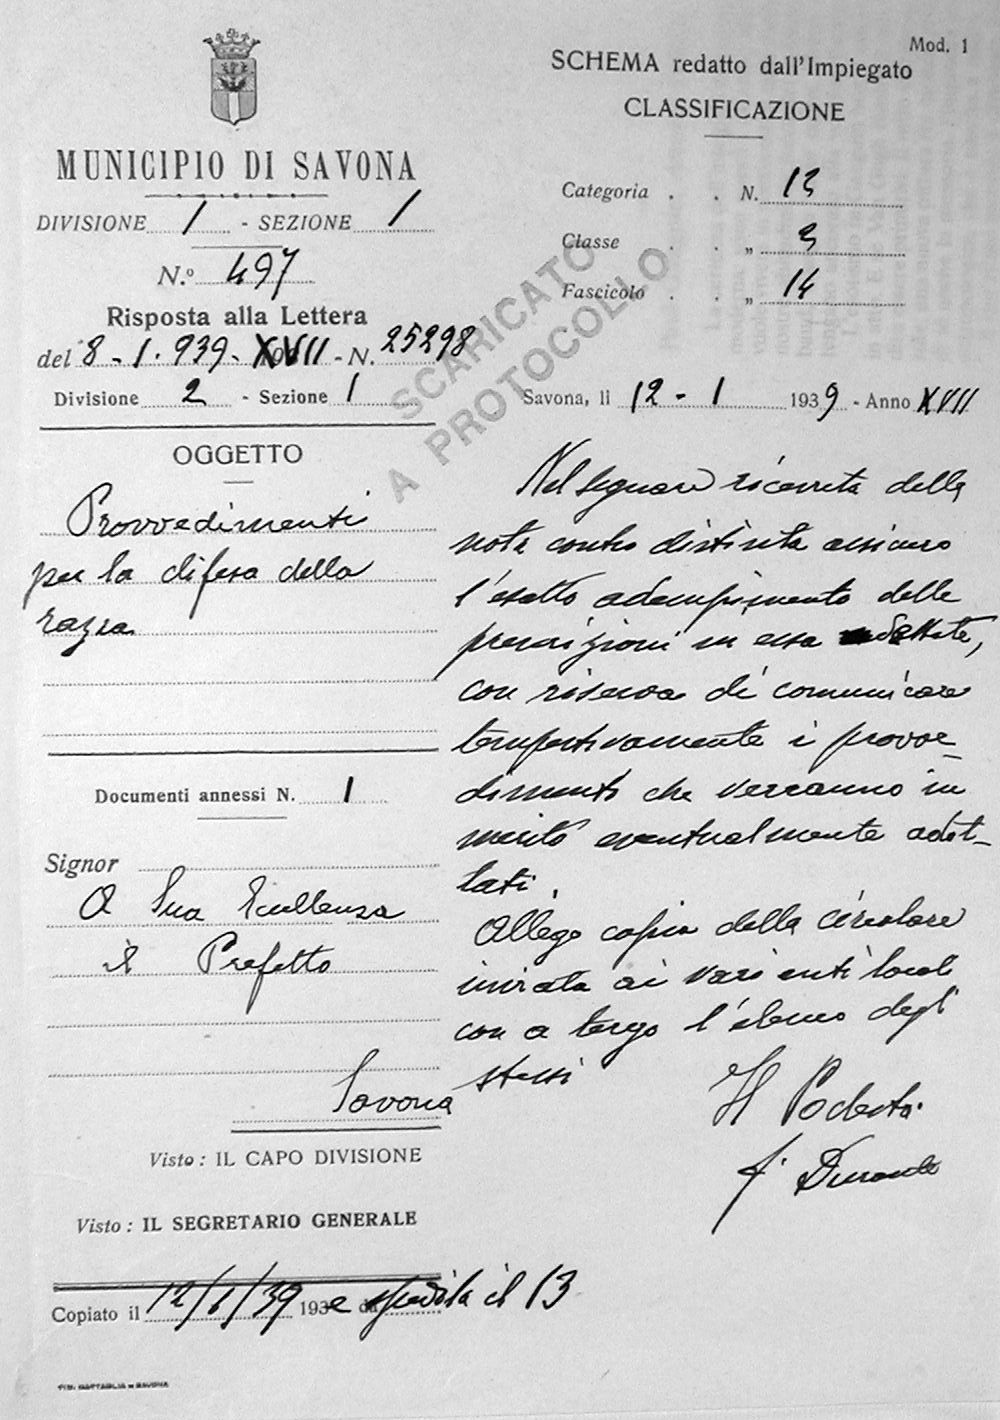 Mod. 1
SCHEMA redatto dall'Impiegato
CLASSIFICAZIONE
MUNICIPIO DI SAVONA
DIVISIONE 1 - SEZIONE 1
N.º 497
Risposta alla Lettera
del 8 - 1. 939 - XVII - N. 25298
Divisione 2 - Sezione 1
Categoria . . N. 13
Classe . . „ 3
Fascicolo . . „ 14
SCARICATO
A PROTOCOLLO
Savona, lì 12 - 1 1939 - Anno XVII
OGGETTO
Provvedimenti
per la difesa della
razza
Documenti annessi N. 1
Signor
A Sua Eccellenza
il Prefetto
Savona
Visto: IL CAPO DIVISIONE
Visto: IL SEGRETARIO GENERALE
Copiato il 12/1/39 193 e spedita il 13
TIP. BATTAGLIA - SAVONA
Nel segnare ricevuta della
nota contro distinta assicuro
l'esatto adempimento delle
prescrizioni in essa dettate,
con riserva di comunicare
tempestivamente i provve-
dimenti che verranno in
merito eventualmente adot-
tati.
Allego copia della circolare
inviata ai vari enti locali
con a tergo l'elenco degli
stessi
Il Podestà
f° Durante